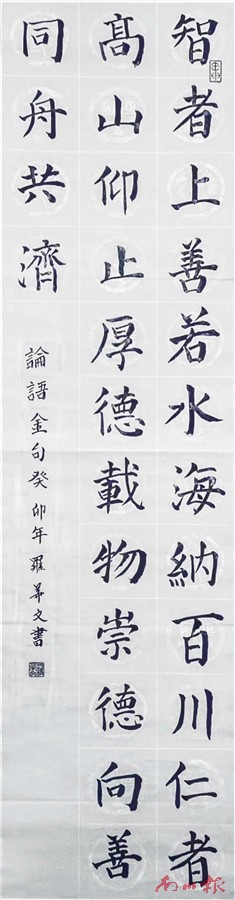 智者上善若水海納百川仁者
高山仰止厚德載物崇德向善
同舟共濟
論語金句癸卯年羅美文書